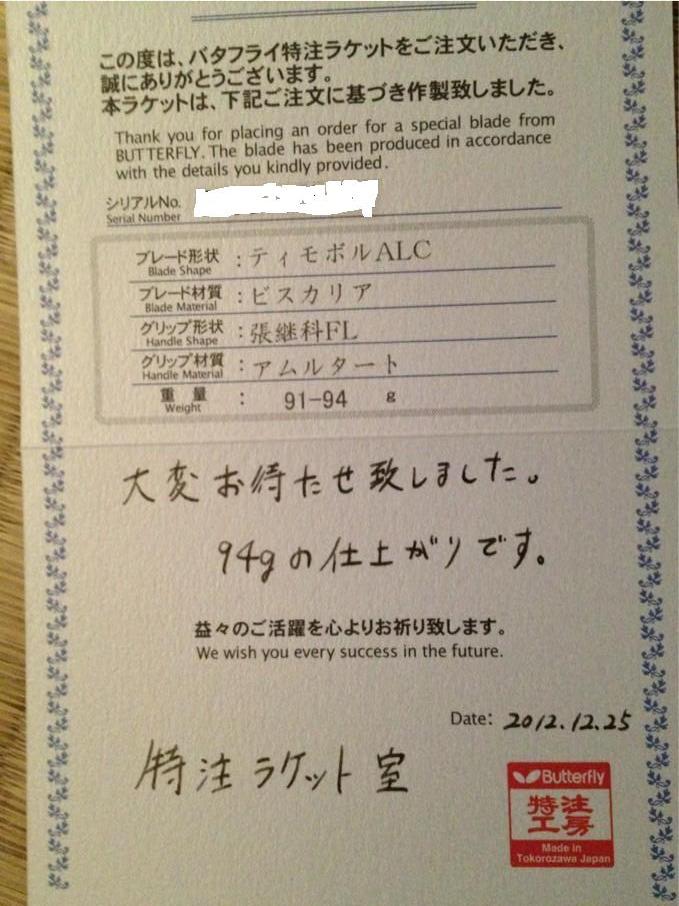 この度は、バタフライ特注ラケットをご注文いただき、
誠にありがとうございます。
本ラケットは、下記ご注文に基づき作製致しました。
Thank you for placing an order for a special blade from
BUTTERFLY. The blade has been produced in accordance
with the details you kindly provided.
シリアルNo.
Serial Number
ブレード形状 : ティモボルALC
Blade Shape
ブレード材質 : ビスカリア
Blade Material
グリップ形状 : 張継科FL
Handle Shape
グリップ材質 : アムルタート
Handle Material
重量 : 91-94 g
Weight
大変お待たせ致しました。
94gの仕上がりです。
益々のご活躍を心よりお祈り致します。
We wish you every success in the future.
Date: 2012.12.25
特注ラケット室
Butterfly
特注
工房
Made in
Tokorozawa Japan